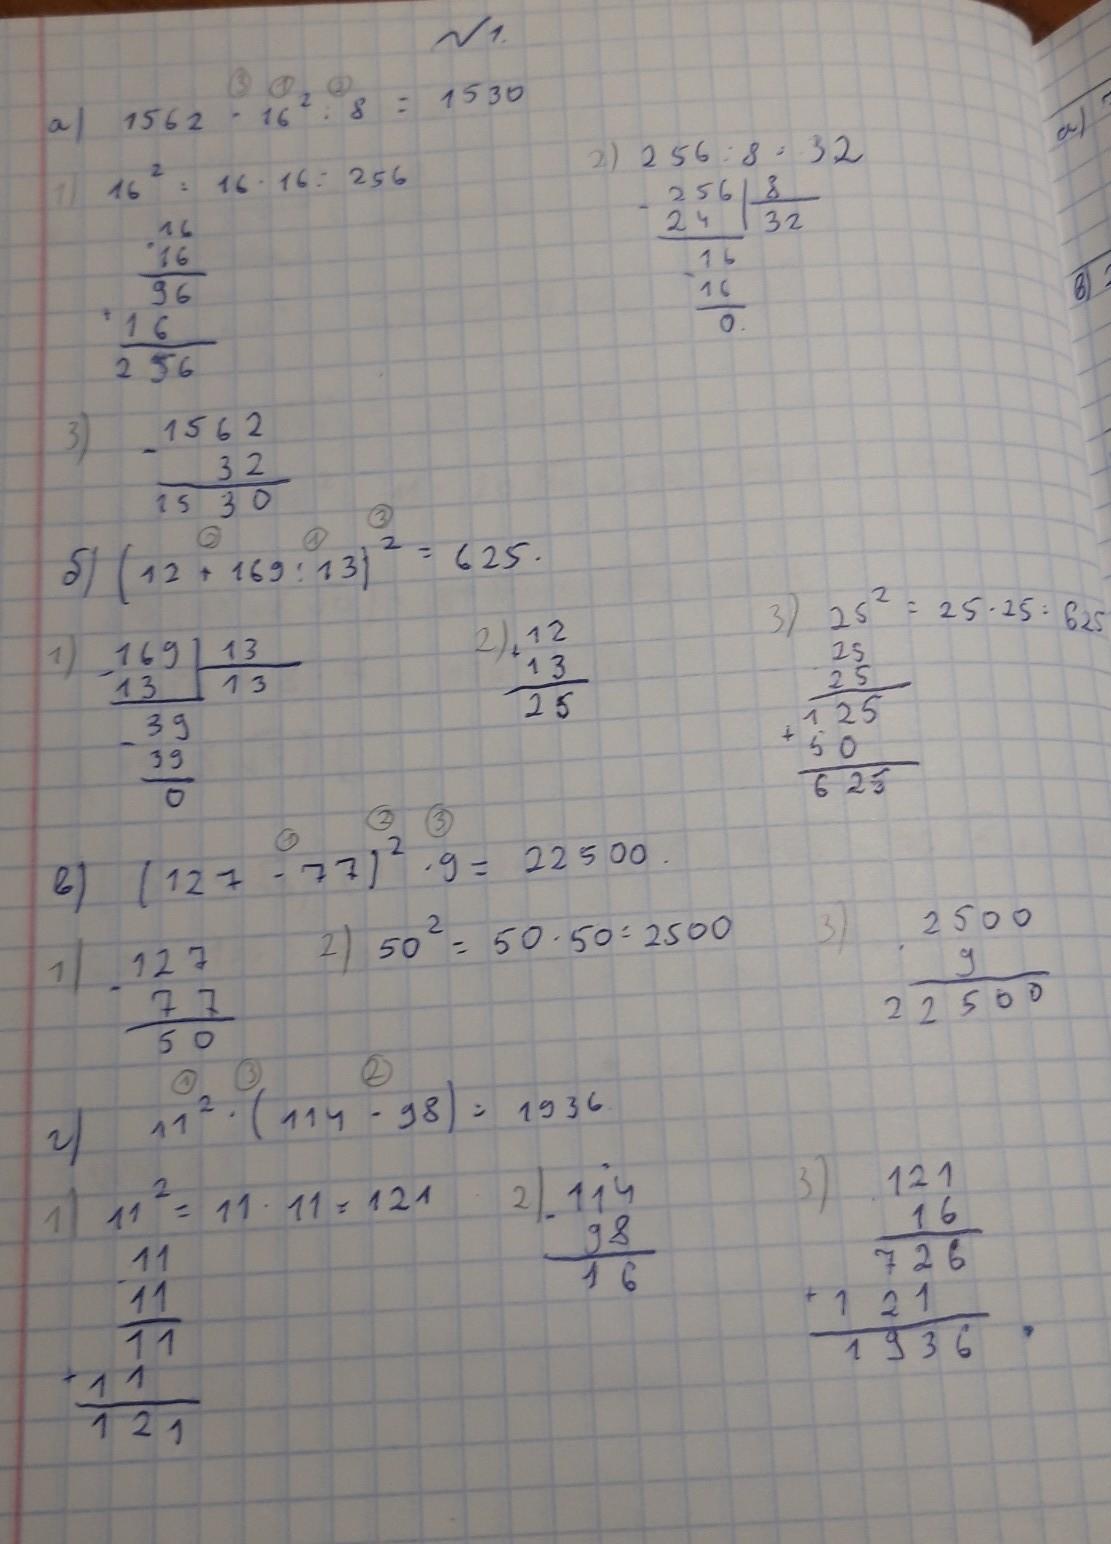 №1.
③ ① ②
а) 1562 - 16² : 8 = 1530
1) 16² = 16 · 16 = 256
·16
16
96
+ 16
256
2) 256 : 8 = 32
- 256 | 8
24 | 32
- 16
16
0.
3) - 1562
32
1530
② ① ③
б) (12 + 169 : 13)² = 625.
1) - 169 | 13
13 | 13
- 39
39
0
2) + 12
13
25
3) 25² = 25 · 25 = 625
25
25
125
+ 50
625
① ② ③
в) (127 - 77)² · 9 = 22500.
1) - 127
77
50
2) 50² = 50 · 50 = 2500
3) · 2500
9
22500
① ③ ②
г) 11² · (114 - 98) = 1936
1) 11² = 11 · 11 = 121
· 11
11
11
+ 11
121
2) - 114
98
16
3) · 121
16
726
+ 121
1936
а)
в)